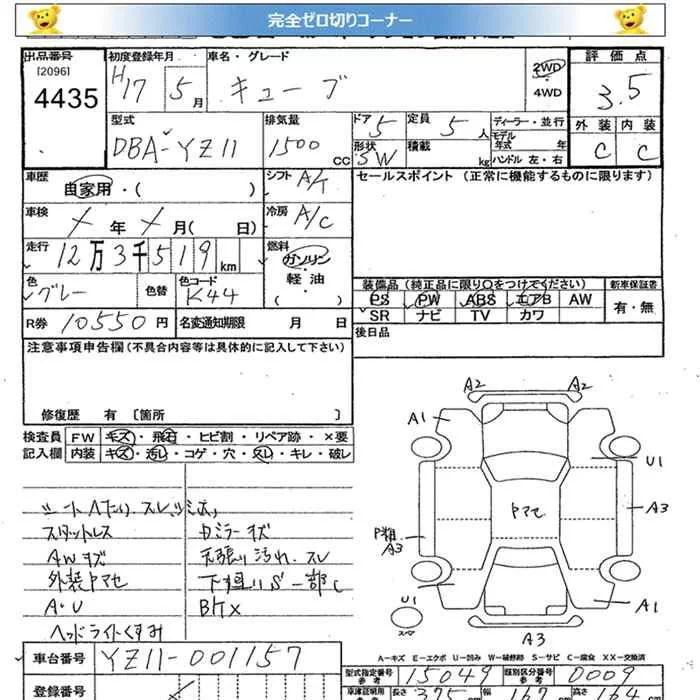 完全ゼロ切りコーナー
出品番号 初度登録年月 車名・グレード 評価点
[2096]
4435 H17 5月 キューブ 2WD 4WD 3.5
型式 排気量 ドア 5 定員 5人 ディーラー・並行 外装 内装
DBA-YZ11 1500cc 形状 SW 積載 kg モデル年式 年 ハンドル 左・右 C C
車歴 自家用・( ) シフト A/T セールスポイント (正常に機能するものに限ります)
車検 年 月( 日) 冷房 A/C
走行 12万3千519km 燃料 ガソリン 軽油 ( )
色 グレー 色替 色コード K44 装備品 (純正品に限り○をつけてください) 新車保証書
PS PW ABS エアB AW 有・無
R券 10550円 名変通知期限 月 日 SR ナビ TV カワ
注意事項申告欄(不具合内容等は具体的に記入して下さい) 後日品
修復歴 有 〔箇所 〕
検査員 FW キズ・飛石・ヒビ割・リペア跡・×要
記入欄 内装 キズ・汚れ・コゲ・穴・スレ・キレ・破レ
シートヘたり、スレ、シミ大
スタットレス カミラーキズ
AWキズ 天張り汚れ、スレ
外装ヤマセ 下廻りS一部C
A・U Bケ×
ヘッドライトくすみ
A2 A2
A1 U1
Pマセ
P粗 A3 A3
U1 スペア A1
A3
A−キズ E−エクボ U−凹み W−補修跡 S−サビ C−腐食 XX−交換済
車台番号 YZ11-001157 型式指定番号 参考 15049 類別区分番号 参考 0009
登録番号 車庫証明用 参考 長さ 375cm 幅 167cm 高さ 164cm